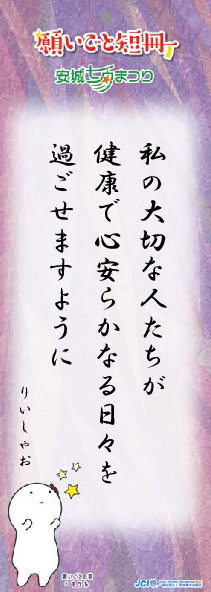 願いごと短冊
安城七夕まつり
私の大切な人たちが
健康で心安らかなる日々を
過ごせますように
りいしゃお
JCI